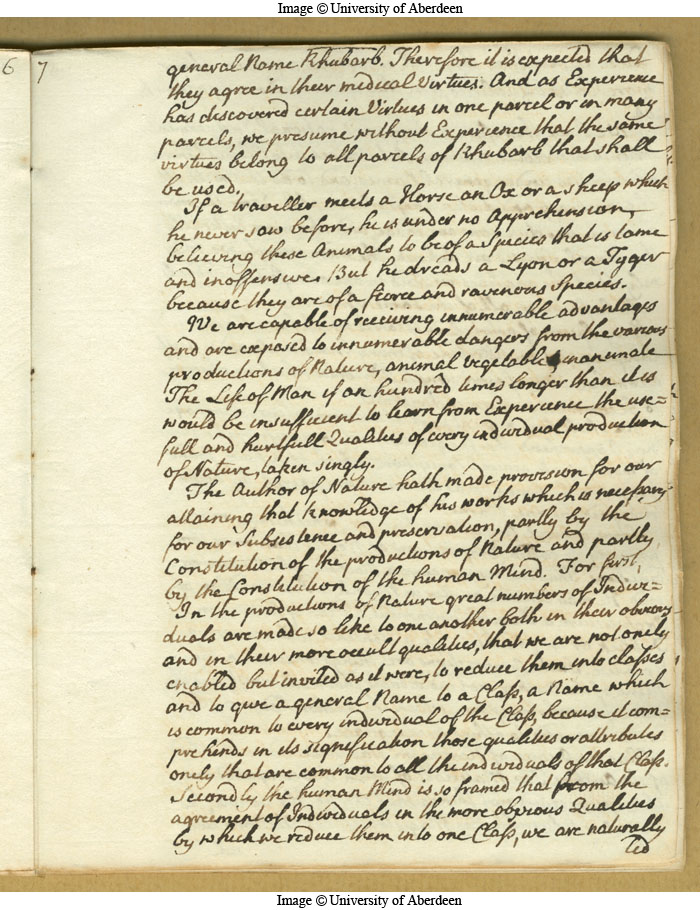 Image © University of Aberdeen
6
7
general Name Rhubarb. Therefore it is expected that
they agree in their medical Virtues. And as Experience
has discovered certain Virtues in one parcel or in many
parcels, we presume without Experience that the same
virtues belong to all parcels of Rhubarb that shall
be used.
If a traveller meets a Horse an Ox or a sheep which
he never saw before, he is under no Apprehension,
believing these Animals to be of a Species that is tame
and inoffensive. But he dreads a Lyon or a Tyger
because they are of a fierce and ravenous Species.
We are capable of receiving innumerable advantages
and are exposed to innumerable dangers from the various
productions of Nature, animal vegetable inanimate
The Life of Man if an hundred times longer than it is
would be insufficient to learn from Experience the use=
full and hurtfull Qualities of every individual production
of Nature, taken singly.
The Author of Nature hath made provision for our
attaining that knowledge of his works which is necessary
for our Subsistence and preservation, partly by the
Constitution of the productions of Nature and partly
by the Constitution of the human Mind. For first,
In the productions of Nature great numbers of Indivi=
duals are made so like to one another both in their obvious
and in their more occult qualities, that we are not onely
enabled but invited as it were, to reduce them into classes
and to give a general Name to a Class, a Name which
is common to every individual of the Class, because it com=
prehends in its signification those qualities or attributes
onely that are common to all the individuals of that Class.
Secondly the human Mind is so framed that from the
agreement of Individuals in the more obvious Qualities
by which we reduce them into one Class, we are naturally
led
Image © University of Aberdeen